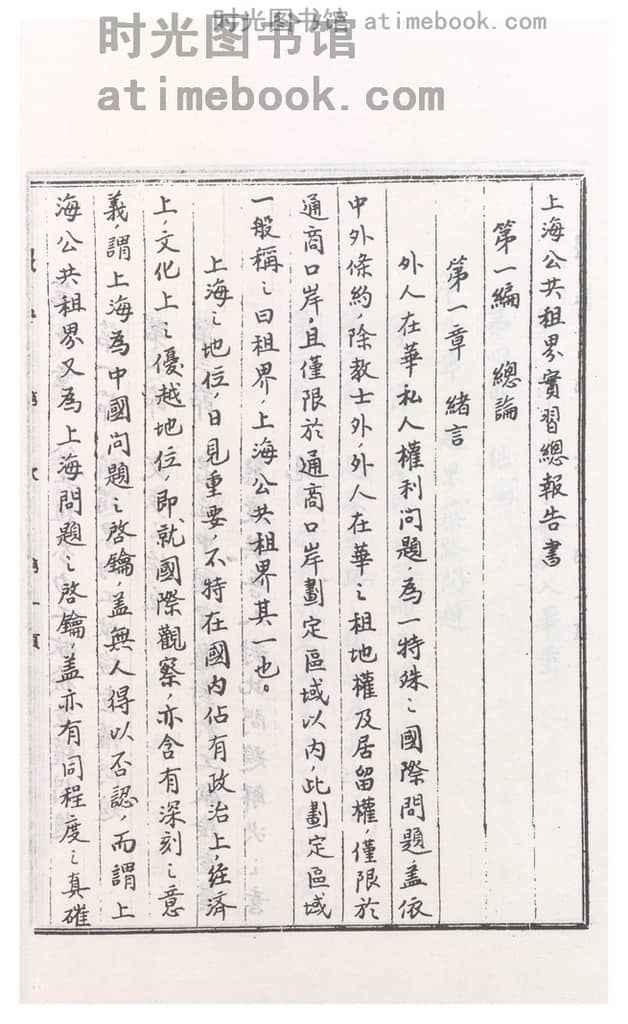 时光图书馆 atimebook.com
时光图书馆
atimebook.com
上海公共租界實習總報告書
第一編 總論
第一章 緒言
外人在華私人權利問題，為一特殊之國際問題，盖依
中外條約，除教士外，外人在華之租地權及居留權，僅限於
通商口岸，且僅限於通商口岸劃定區域以內，此劃定區域
一般稱之曰租界，上海公共租界其一也。
上海之地位，日見重要，不特在國內佔有政治上，経濟
上，文化上之優越地位，即就國際觀察，亦含有深刻之意
義，謂上海為中國問題之啓鑰，盖無人得以否認，而謂上
海公共租界又為上海問題之啓鑰，盖亦有同程度之真確
第 第一頁